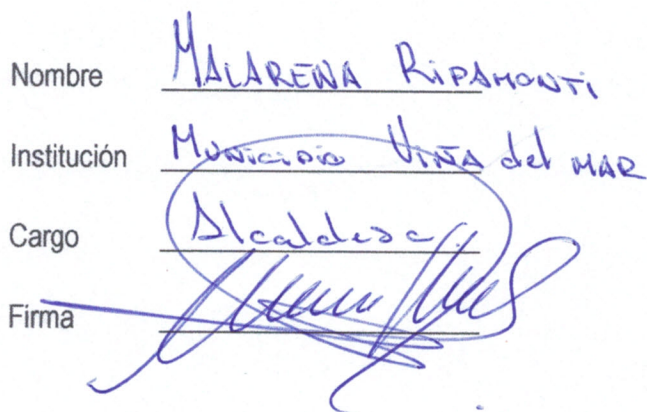 Nombre MACARENA RIPAMONTI
Institución Municipio VIÑA del MAR
Cargo Alcaldesa
Firma